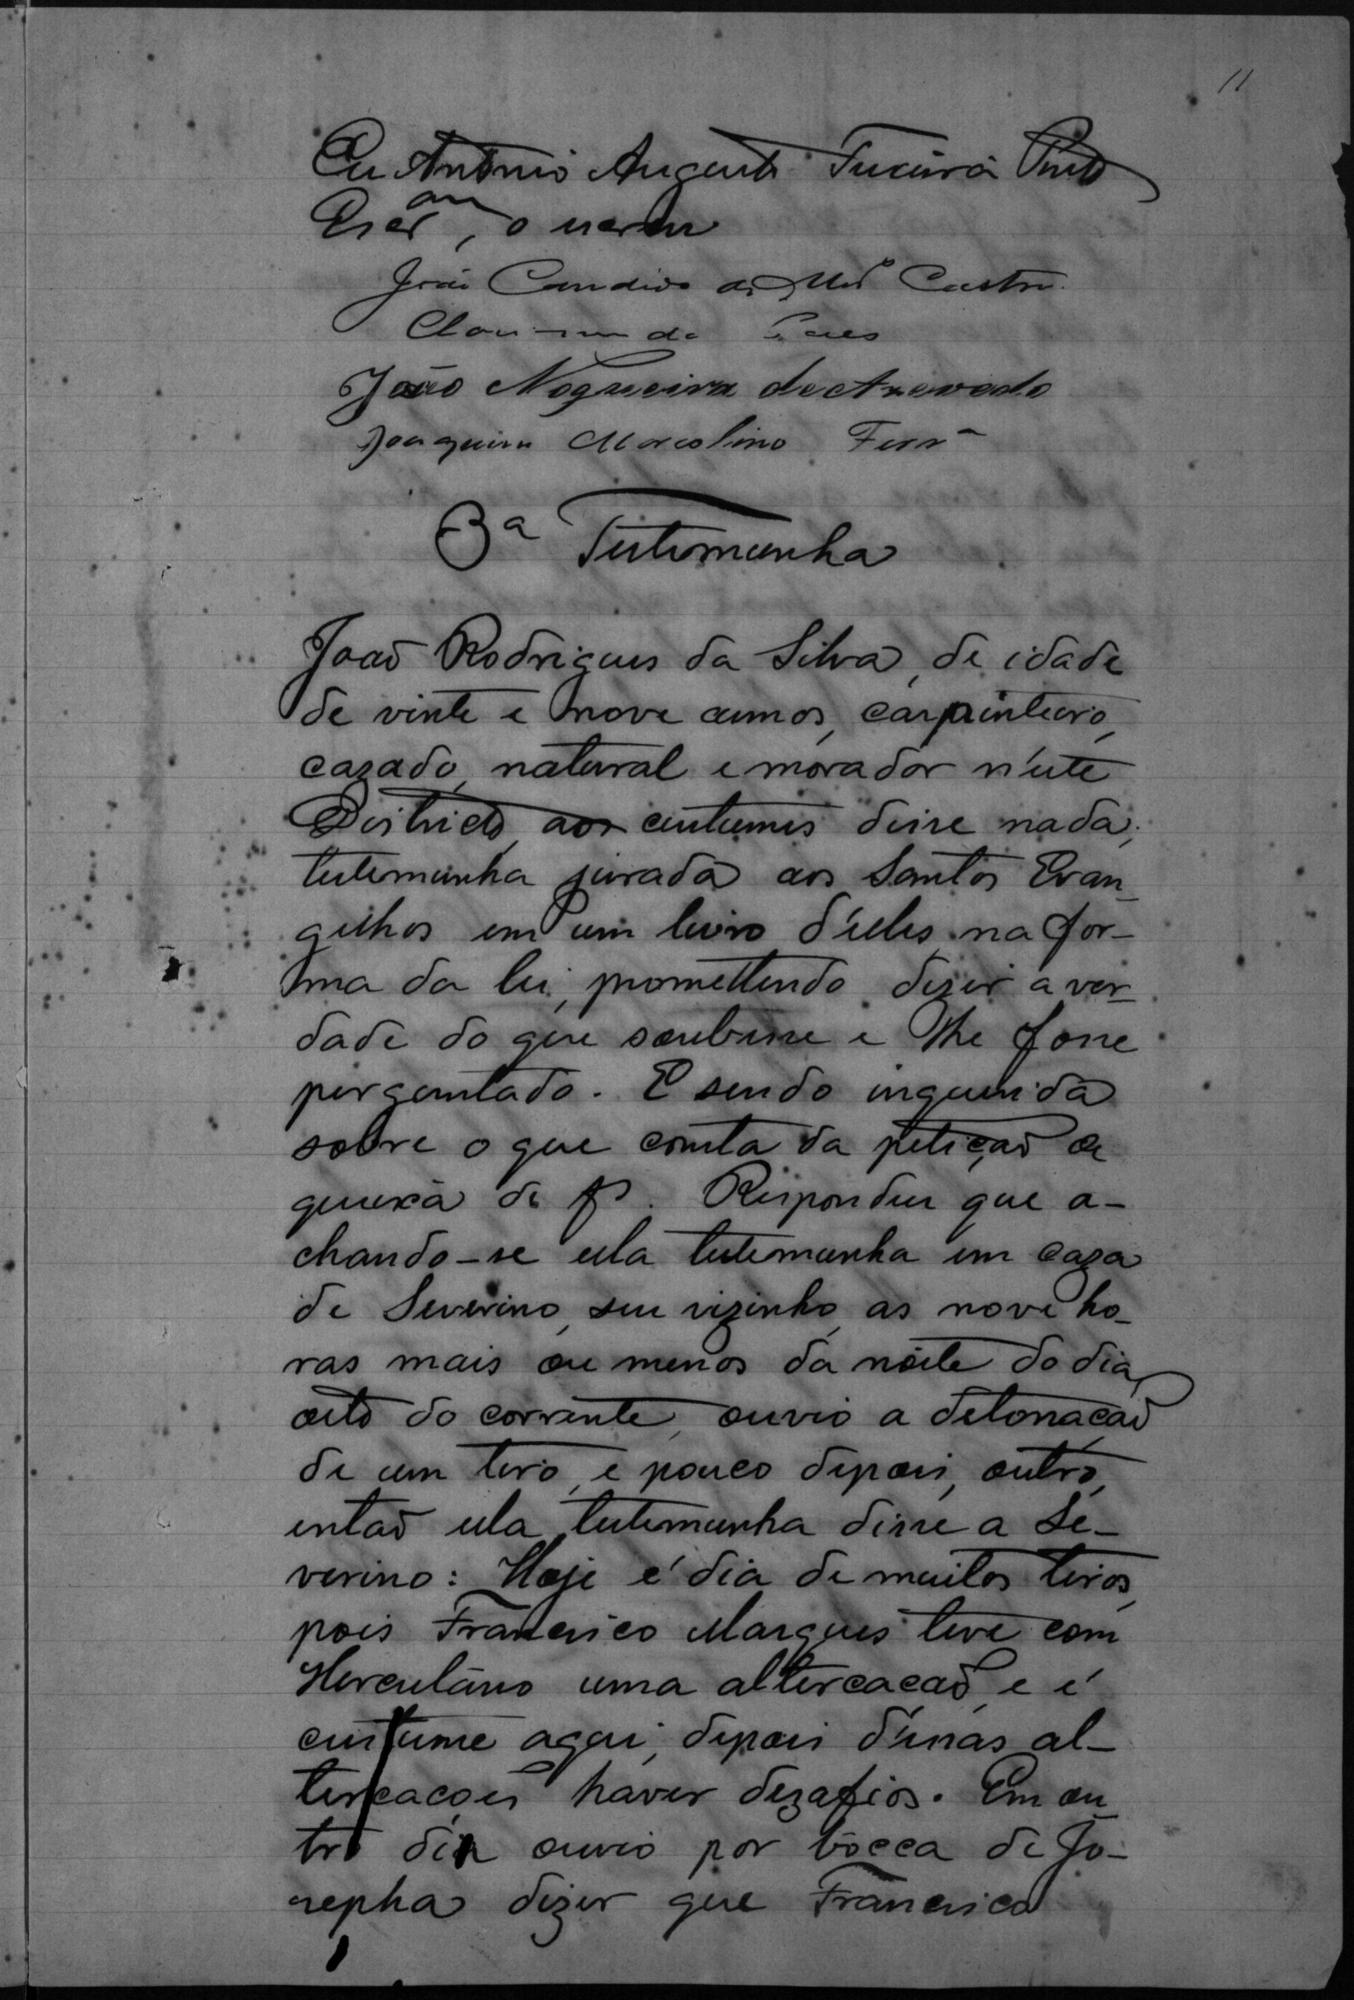 11
Eu Antonio Augusto Teixeira Pinto
Escr.am, o escrevi
João Candido de Castro
João Nogueira de Azevedo
Joaquim Marcolino Ferr.a
3ª Testemunha
João Rodrigues da Silva, de idade
de vinte e nove annos, carpinteiro,
cazado, natural e morador n'este
Districto, aos custumes disse nada;
testemunha jurada aos Santos Evan-
gelhos em um livro d'elles, na for-
ma da lei, promettendo dizer a ver-
dade do que soubesse e lhe fosse
perguntado. E sendo inquerida
sobre o que consta da petição de
queixa de fs. Respondeu que a-
chando-se ella testemunha em caza
de Severino, seu vizinho, as nove ho-
ras mais ou menos da noite do dia
oito do corrente, ouvio a detonação
de um tiro, e pouco depois, outro,
então ella testemunha disse a Se-
verino: Hoje é dia de muitos tiros,
pois Francisco Marques teve com
Herculano uma altercação, e é
custume aqui, depois d'essas al-
tercações haver dezafios. Em ou-
tro dia ouvio por bocca de Jo-
sepha dizer que Francisco